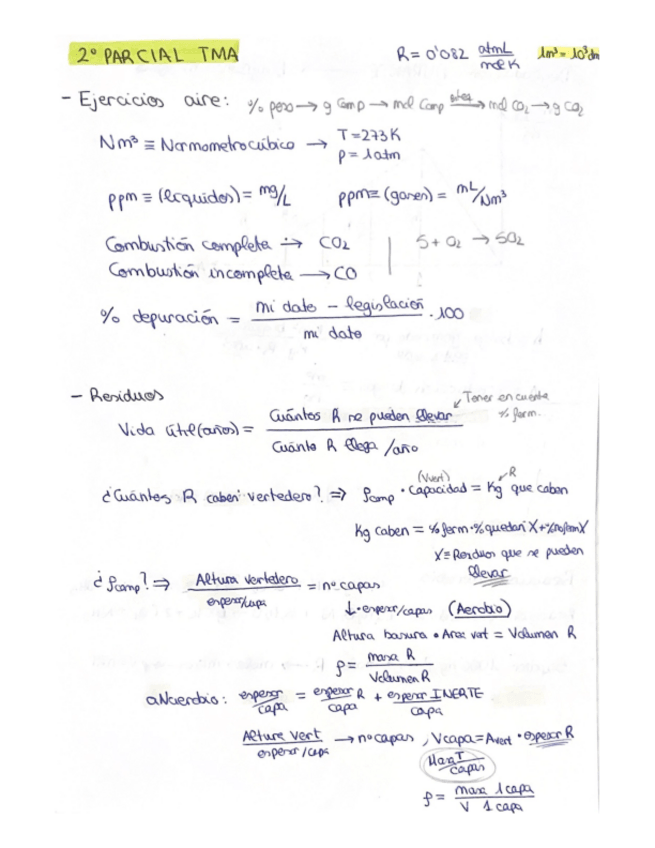 2º PARCIAL TMA
R = 0'082 atm L / mol K
1m³ = 10³ dm
- Ejercicios aire: % peso → g comp → mol comp esteq → mol CO₂ → g CO₂
Nm³ ≡ Normometrocúbico → T = 273 K
P = 1 atm
ppm ≡ (líquidos) = mg/L ppm ≡ (gases) = mL/Nm³
Combustión completa → CO₂ | S + O₂ → SO₂
Combustión incompleta → CO
% depuración = mi dato - legislación / mi dato · 100
- Residuos
Tener en cuenta
% ferm.
Vida útil (años) = Cuántos R se pueden llevar / Cuánto R llega /año
¿Cuántos R caben vertedero? ⇒ ρcomp · Capacidad (Vvert) = Kg R que caben
Kg caben = % ferm · % quedan · X + % no ferm X
X ≡ Residuos que se pueden
llevar
¿ρcomp? ⇒ Altura vertedero / espesor/capa = nº capas
↓ · espesor/capas (Aerobio)
Altura basura · Área vert = Volumen R
ρ = masa R / Volumen R
aNaerobio: espesor / capa = espesor R / capa + espesor INERTE / capa
Altura vert / espesor/capa → nº capas, Vcapa = Avert · espesor R
MasaT / capas
ρ = masa 1 capa / V 1 capa